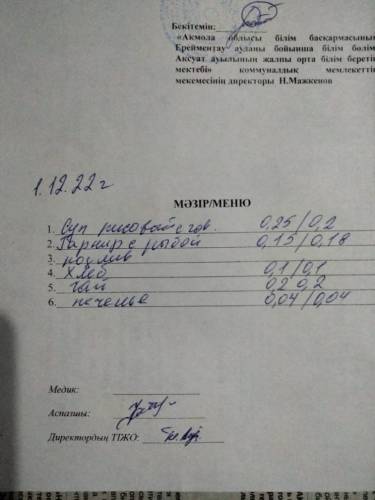 Бекітемін:
«Ақмола облысы білім басқармасының
Ерейментау ауданы бойынша білім бөлімі
Ақсуат ауылының жалпы орта білім беретін
мектебі» коммуналдық мемлекеттік
мекемесінің директоры Н.Мажкенов
1.12.22г
МӘЗІР/МЕНЮ
1. Суп рисовый с гов. 0,25/0,2
2. Гарнир с рыбой 0,15/0,18
3. подлив
4. Хлеб 0,1/0,1
5. чай 0,2 0,2
6. печенье 0,04/0,04
Медик:
Аспазшы:
Директордың ТІЖО: